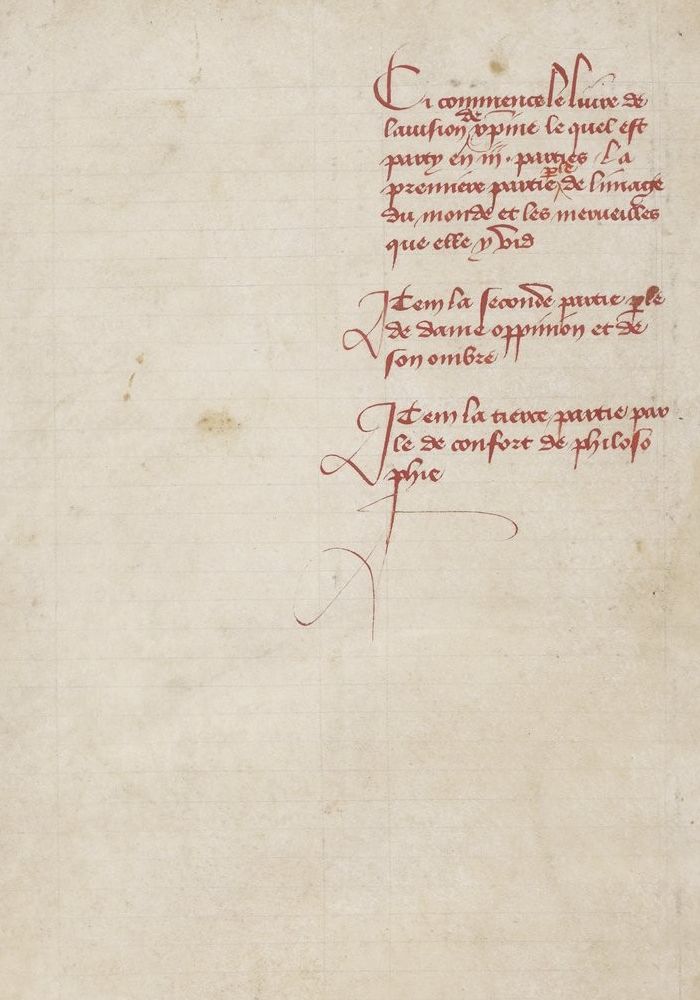 Ci commence le livre de
lavision de xpine le quel est
party en iii · parties · La
premiere partie ple de limage
du monde et les merveilles
que elle y vid
Item la seconde partie ple
de dame oppinion et de
son ombre
Item la tierce partie par
le de confort de philoso
phie